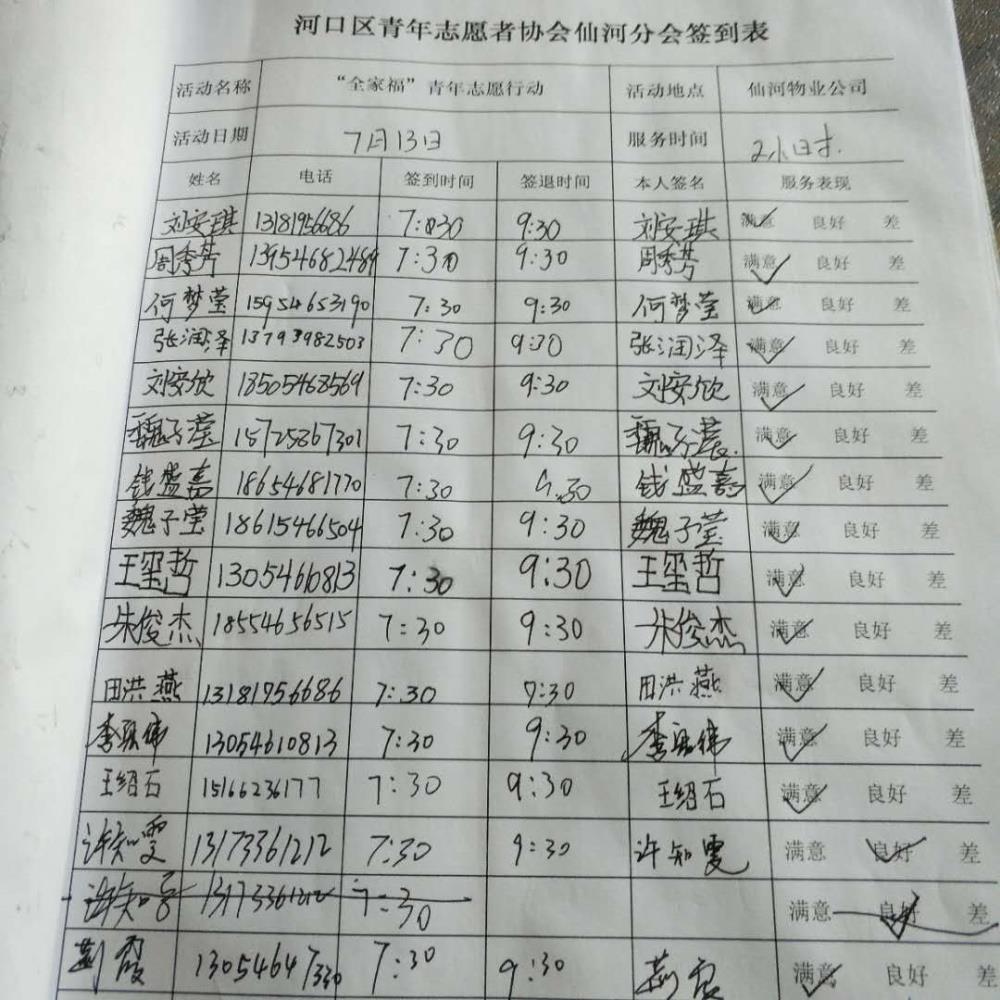 河口区青年志愿者协会仙河分会签到表
活动名称 “全家福”青年志愿行动 活动地点 仙河物业公司
活动日期 7月13日 服务时间 2小时.
姓名 电话 签到时间 签退时间 本人签名 服务表现
刘安琪 13181956686 7:030 9:30 刘安琪 满意 良好 差
周秀芳 13954682489 7:30 9:30 周秀芳 满意 良好 差
何梦莹 15954653190 7:30 9:30 何梦莹 满意 良好 差
张润泽 13793982503 7:30 9:30 张润泽 满意 良好 差
刘安欣 18505468569 7:30 9:30 刘安欣 满意 良好 差
魏子滢 15725867301 7:30 9:30 魏子滢 满意 良好 差
钱盛嘉 18654681770 7:30 9:30 钱盛嘉 满意 良好 差
魏子莹 18615466504 7:30 9:30 魏子莹 满意 良好 差
王玺哲 13054610813 7:30 9:30 王玺哲 满意 良好 差
朱俊杰 18554656515 7:30 9:30 朱俊杰 满意 良好 差
田洪燕 13181956686 7:30 9:30 田洪燕 满意 良好 差
13054610813 7:30 9:30 满意 良好 差
王绍石 15166236177 7:30 9:30 王绍石 满意 良好 差
许知雯 13173361212 7:30 9:30 许知雯 满意 良好 差
许知 13173361212 7:30 满意 良好 差
荆霞 13054647330 7:30 9:30 荆霞 满意 良好 差